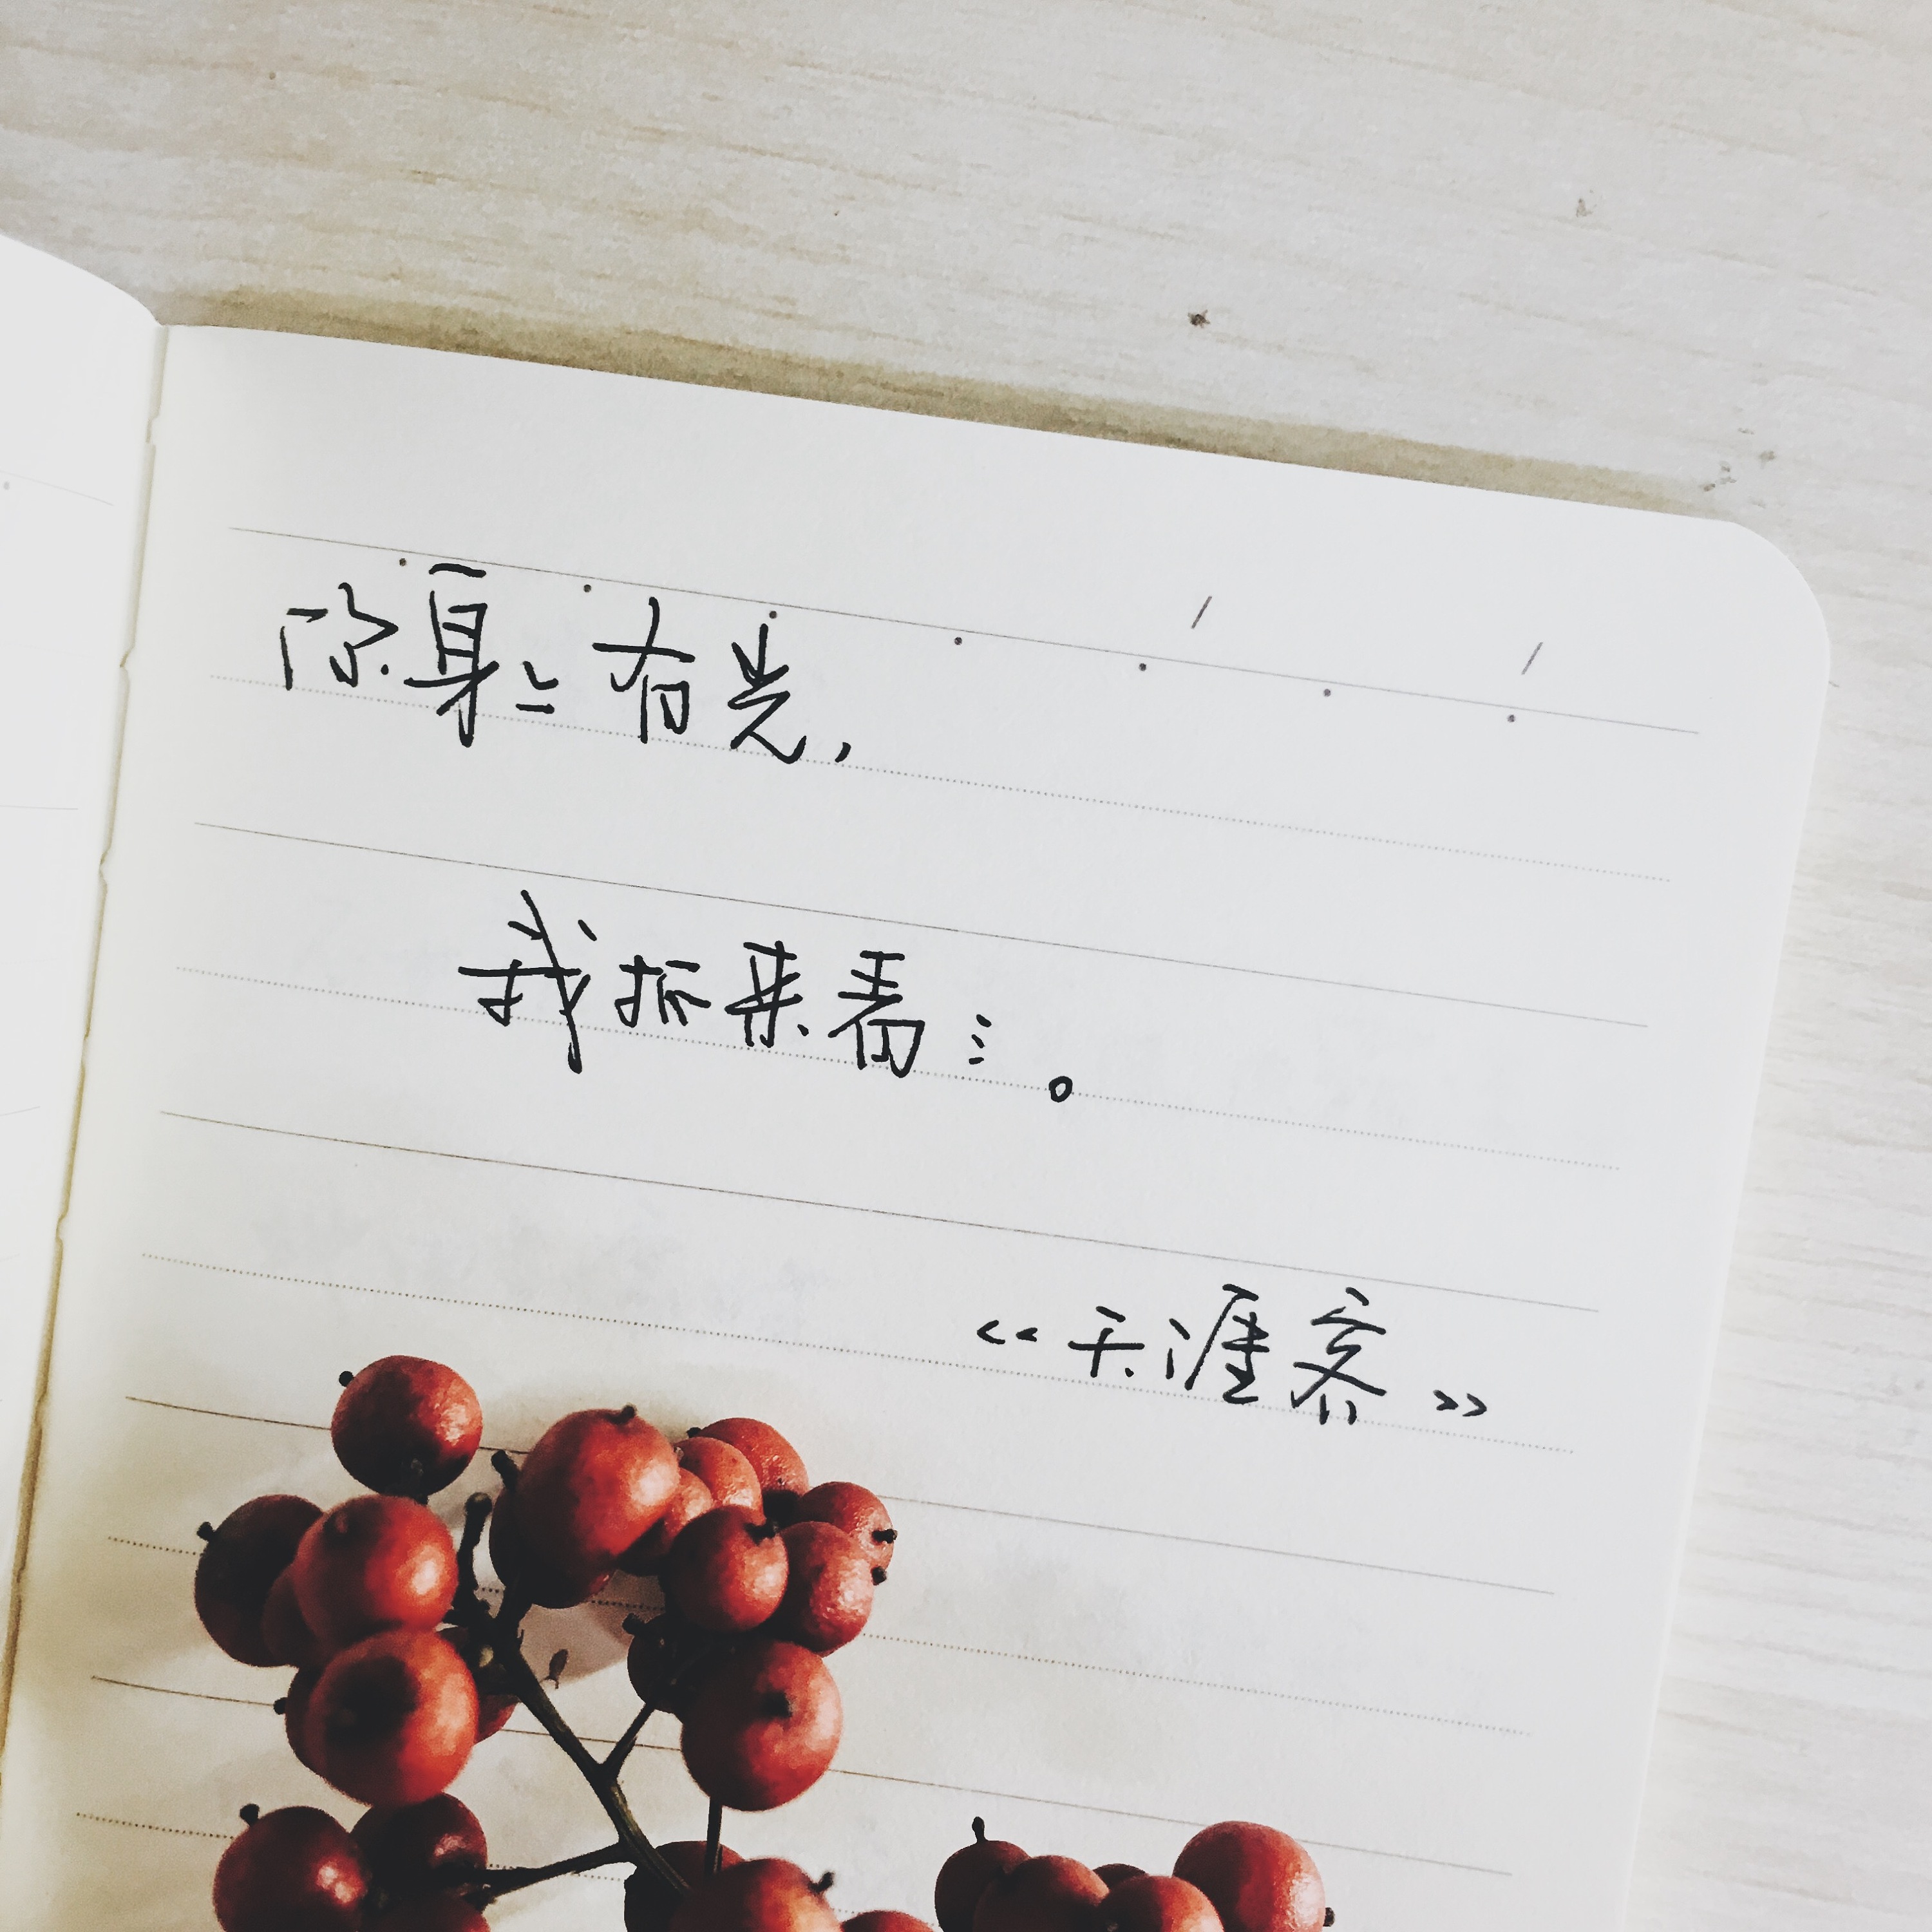 你身上有光,
我抓来看看。
《天涯客》